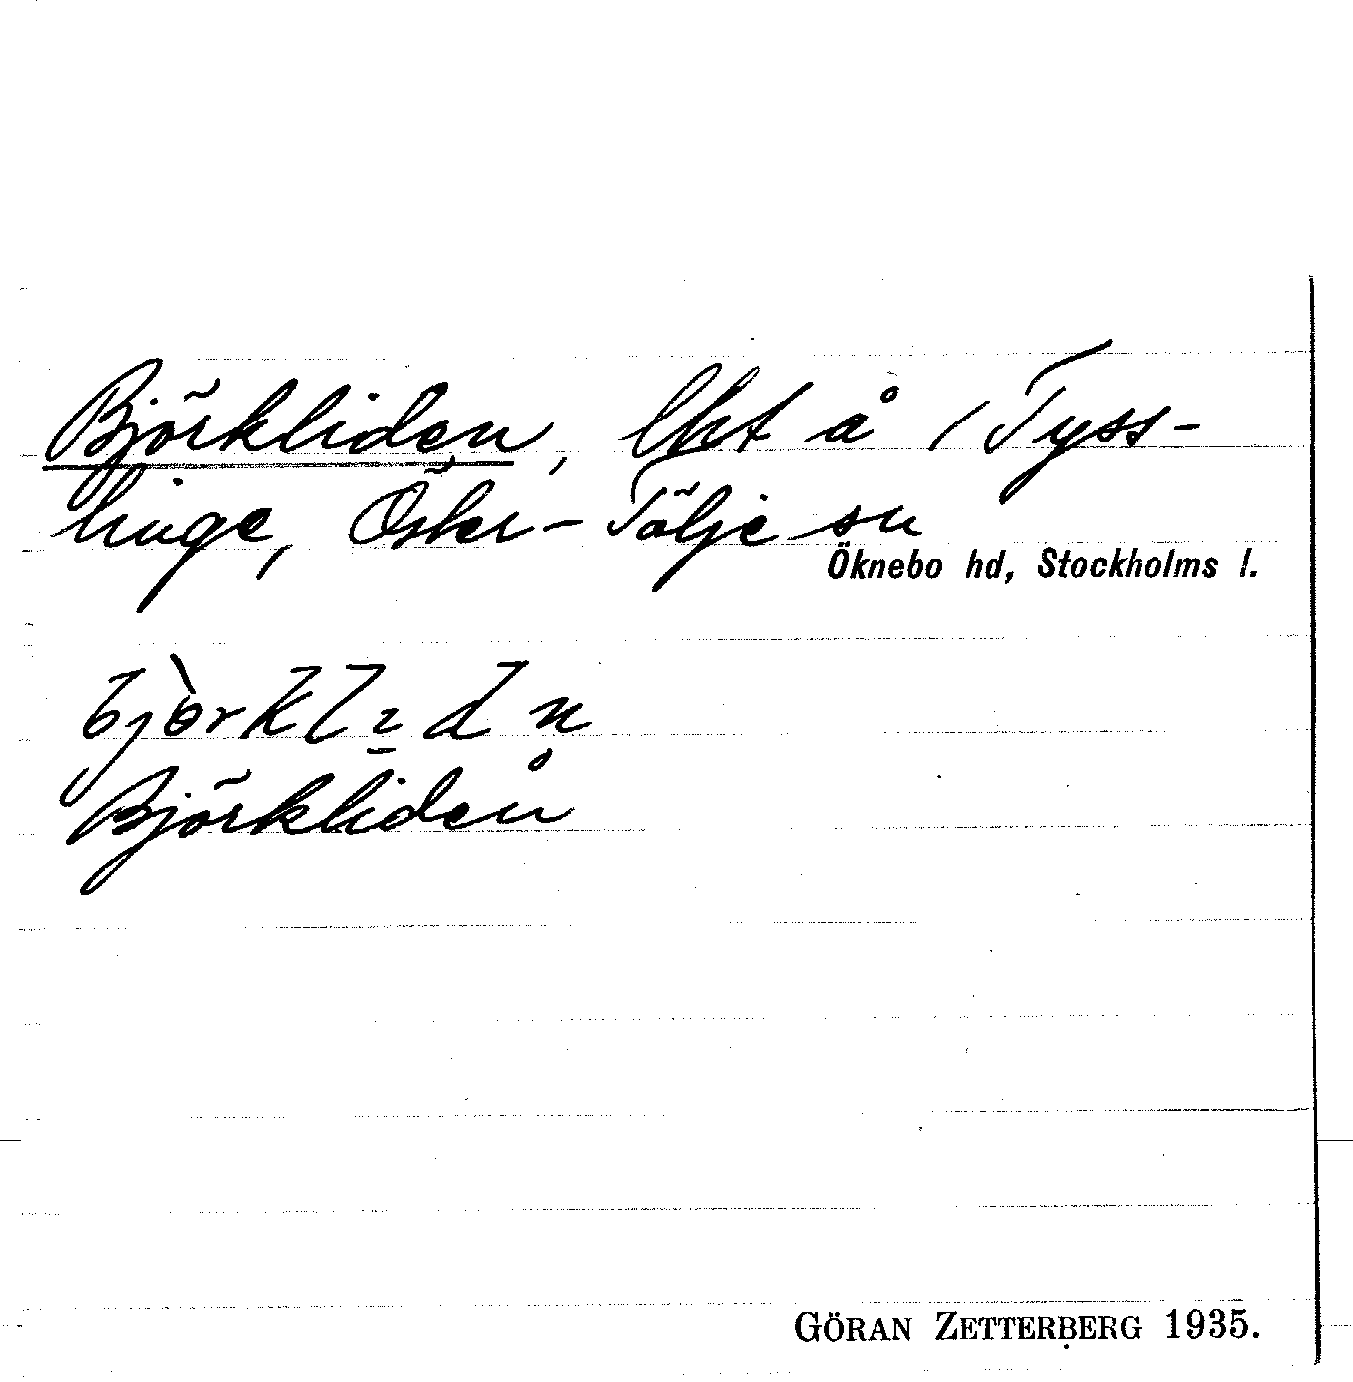 Björkliden, lht å 1 Tyss-
linge, Öster-Tälje sn
Öknebo hd, Stockholms l.
bjòrklịdn̥
Björkliden
GÖRAN ZETTERBERG 1935.